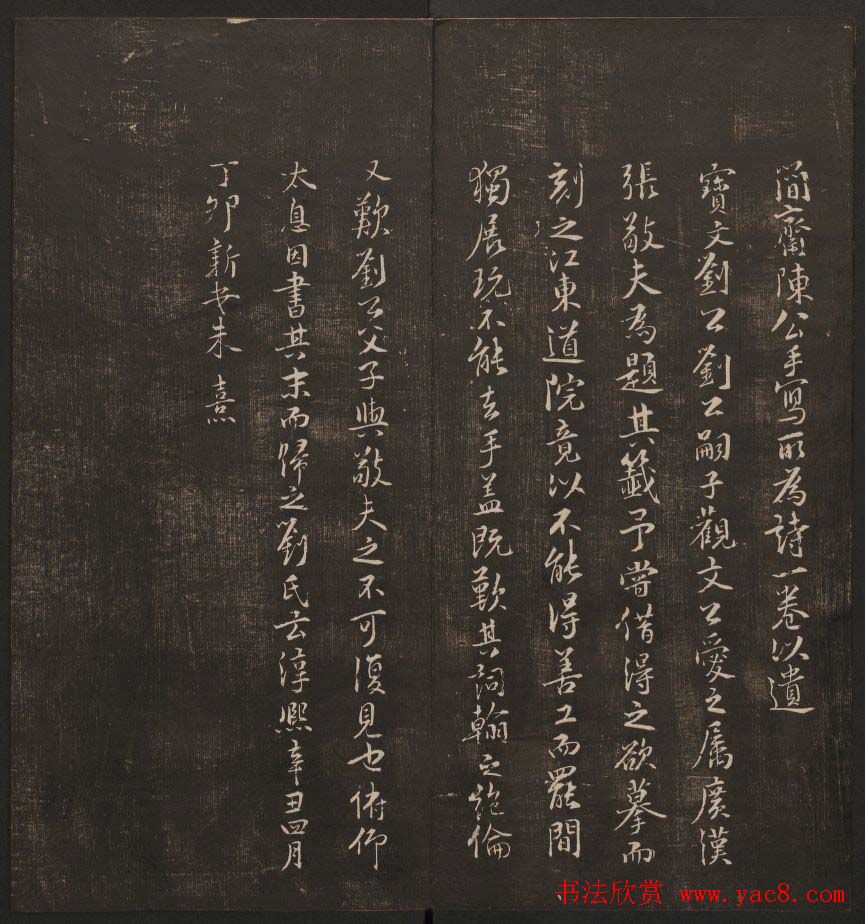 簡齋陳公手寫所為詩一卷以遺
寶文劉公劉公嗣子觀文公愛之屬廣漢
張敬夫為題其籤予嘗借得之欲摹而
刻之江東道院竟以不能得善工而罷間
獨展玩不能去手蓋既歎其詞翰之絶倫
又歎劉公父子與敬夫之不可復見也俯仰
太息因書其末而歸之劉氏云淳熙辛丑四月
丁卯新安朱熹
书法欣赏 www.yac8.com